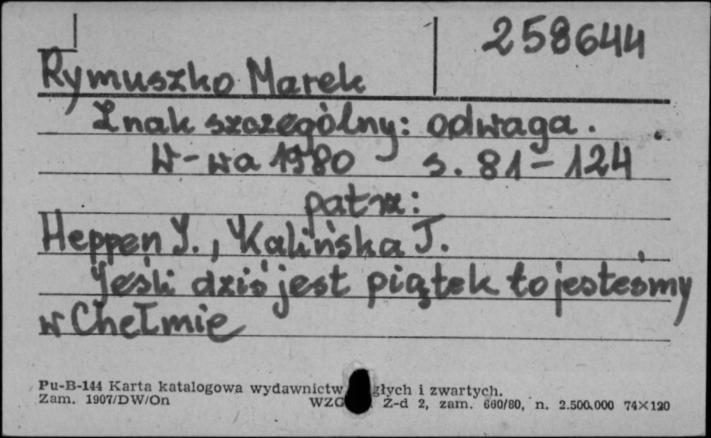 258644
Rymuszko Marek
Znak szczególny: odwaga.
W-wa 1980 s. 81-124
patrz:
Heppen J., Kalińska J.
Jeśli dziś jest piątek to jesteśmy
w Chełmie
Pu-B-144 Karta katalogowa wydawnictw głych i zwartych.
Zam. 1907/DW/On WZG Z-d 2, zam. 660/80, n. 2.500.000 74×120